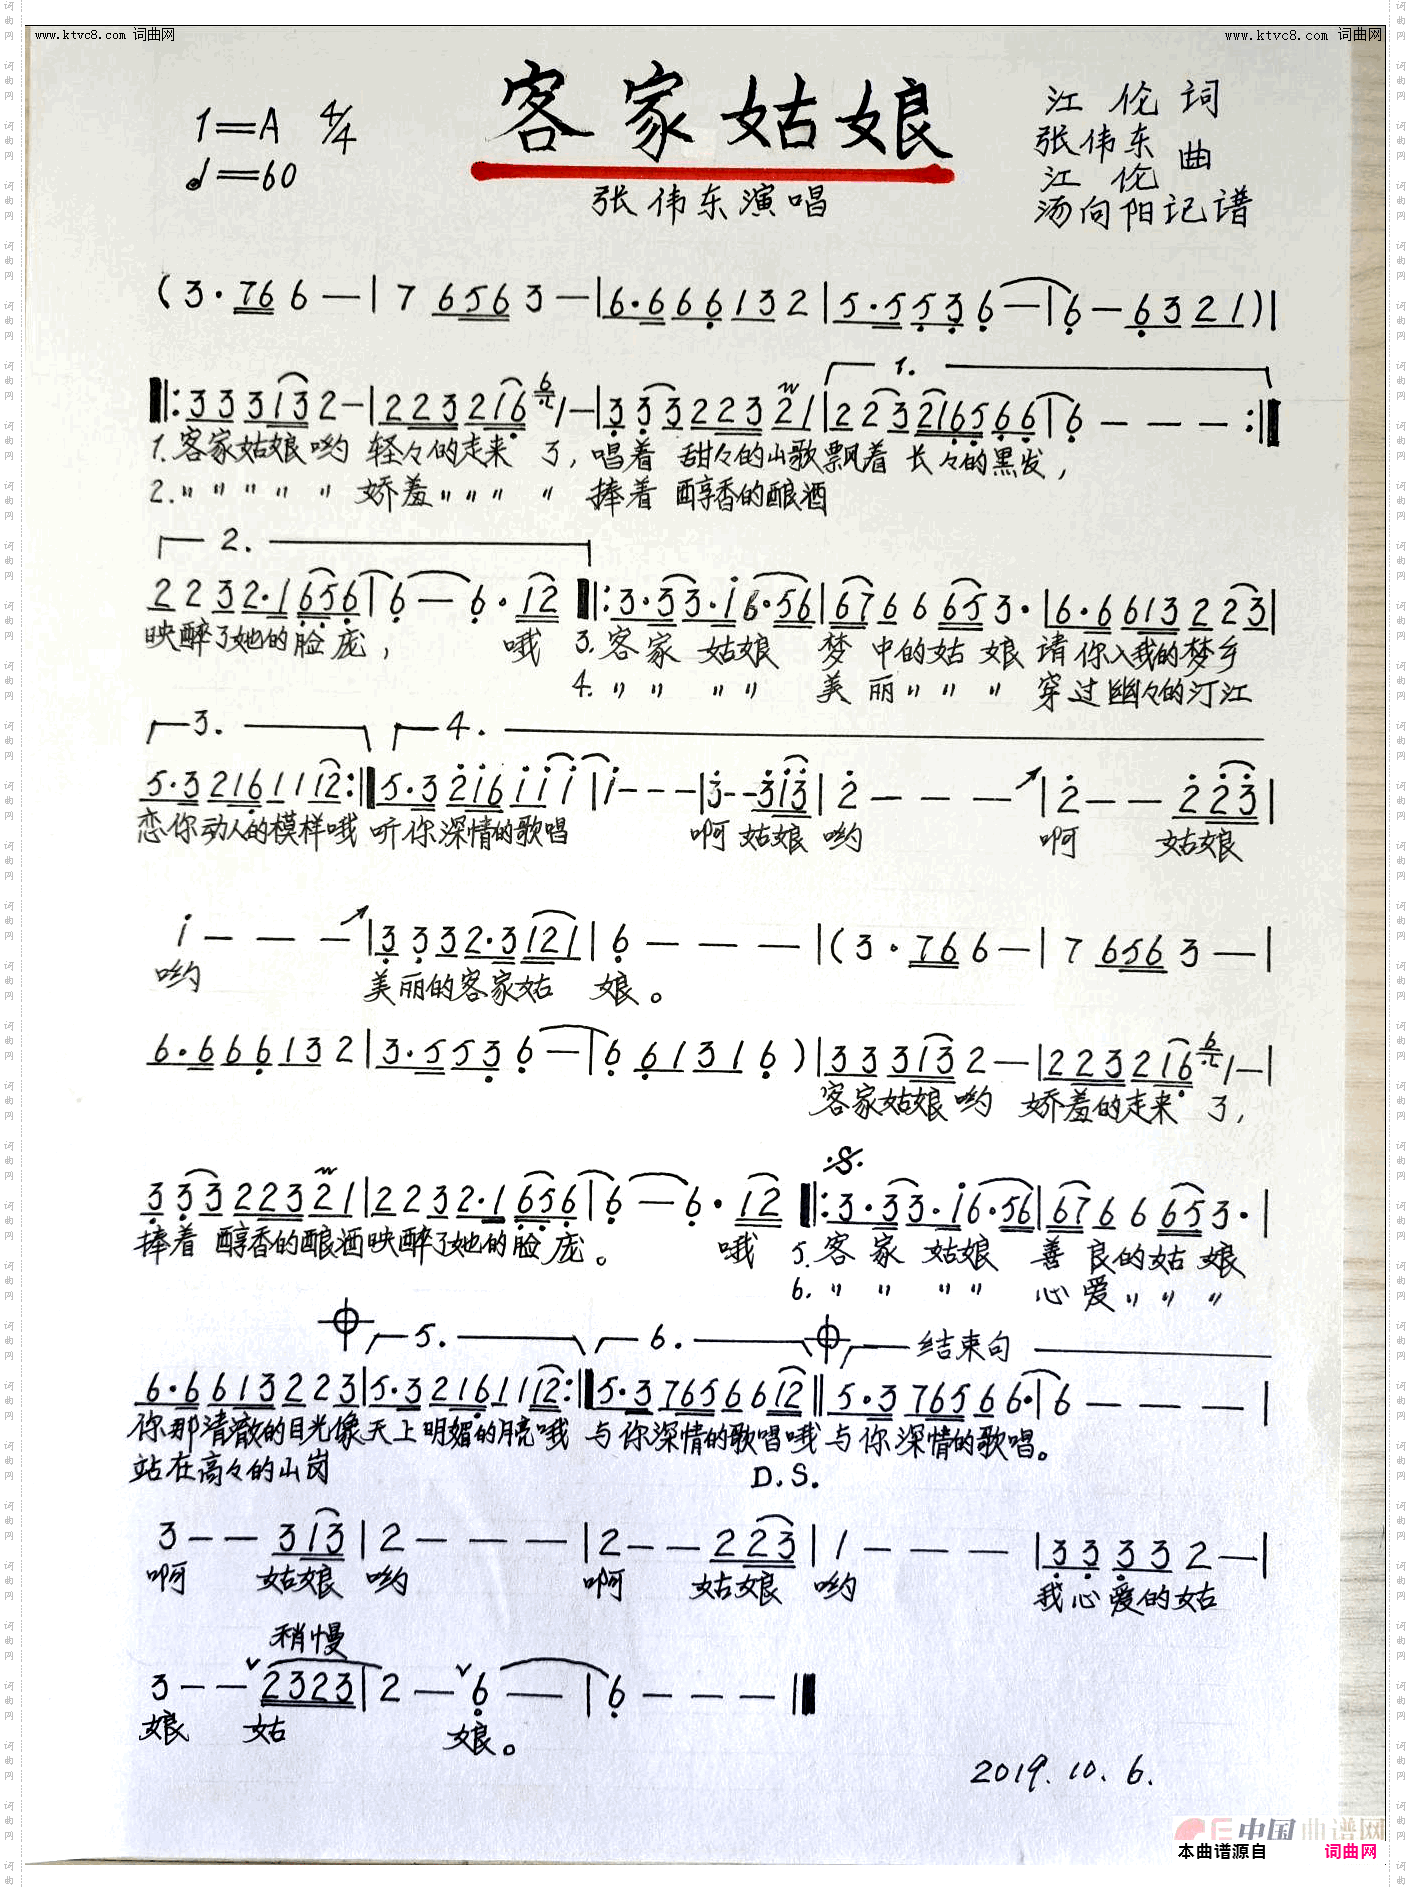 www.ktvc8.com 词曲网
www.ktvc8.com 词曲网
客家姑娘
1=A 4/4
♩=60
张伟东演唱
江伦词
张伟东
江伦 曲
汤向阳记谱
(3·76 6—|7 6563—|6·666132|5·5536—|6—6321)|
1.
‖:333132—|2232161—|33322321|223216566|6———:‖
1.客家姑娘哟 轻々的走来 了,唱着 甜々的山歌飘着 长々的黑发,
2.〃〃〃〃〃 娇羞〃〃〃 〃 捧着 醇香的酿酒
2.
2232·1656|6—6·12‖:3·33·i6·56|676 6653·|6·6613223|
映醉了她的脸庞, 哦 3.客家 姑娘 梦 中的姑娘 请你入我的梦乡
4.〃〃 〃〃 美 丽〃〃〃 穿过幽々的汀江
3. 4.
5·32161112:‖5·32i6iiii|i———|3——3i3|2———|2——223|
恋你动人的模样哦 听你深情的歌唱 啊 姑娘 哟 啊 姑娘
i———|3332·3121|6———|(3·76 6—|7 6563—|
哟 美丽的客家姑 娘。
6·666132|3·5536—|661316)|333132—|2232161—|
客家姑娘哟 娇羞的走来 了,
33322321|2232·1656|6—6·12‖:3·33·i6·56|676 6653·|
捧着 醇香的酿酒映醉了她的脸庞。 哦 5.客家 姑娘 善 良的姑 娘
6.〃〃 〃〃 心 爱〃〃〃
5. 6. 结束句
6·6613223|5·32161112:‖5·376566612‖5·3765666·|6———|
你那清澈的目光像天上明媚的月亮哦 与你深情的歌唱哦与你深情的歌唱。
站在高々的山岗
D.S.
3——313|2———|2——223|1———|33332—|
啊 姑娘 哟 啊 姑娘 哟 我心爱的姑
稍慢
3——2323|2—6—|6———‖
娘 姑 娘。
2019.10.6.
中国曲谱网
本曲谱源自 词曲网